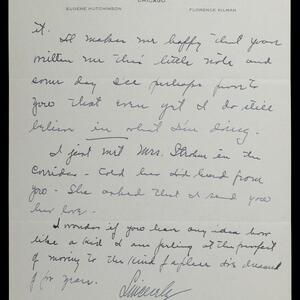 CHICAGO
EUGENE HUTCHINSON
FLORENCE KILMAN
it. It makes me happy that you've
written me this little note and
some day I'll perhaps prove to
you that even yet I do still
believe in what I'm doing.
I just met Mrs. in the
corridor. Told her I'd heard from
you. She asked that I send you
her love.
I wonder if you have any idea how
like a kid I am feeling at the prospect
of moving to the kind of a place I've dreamed
of for years.
Sincerely